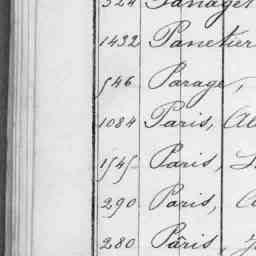 324
1432 Panetier
546 Parage,
1084 Paris, Al
1545 Paris,
290 Paris,
280 Pâris